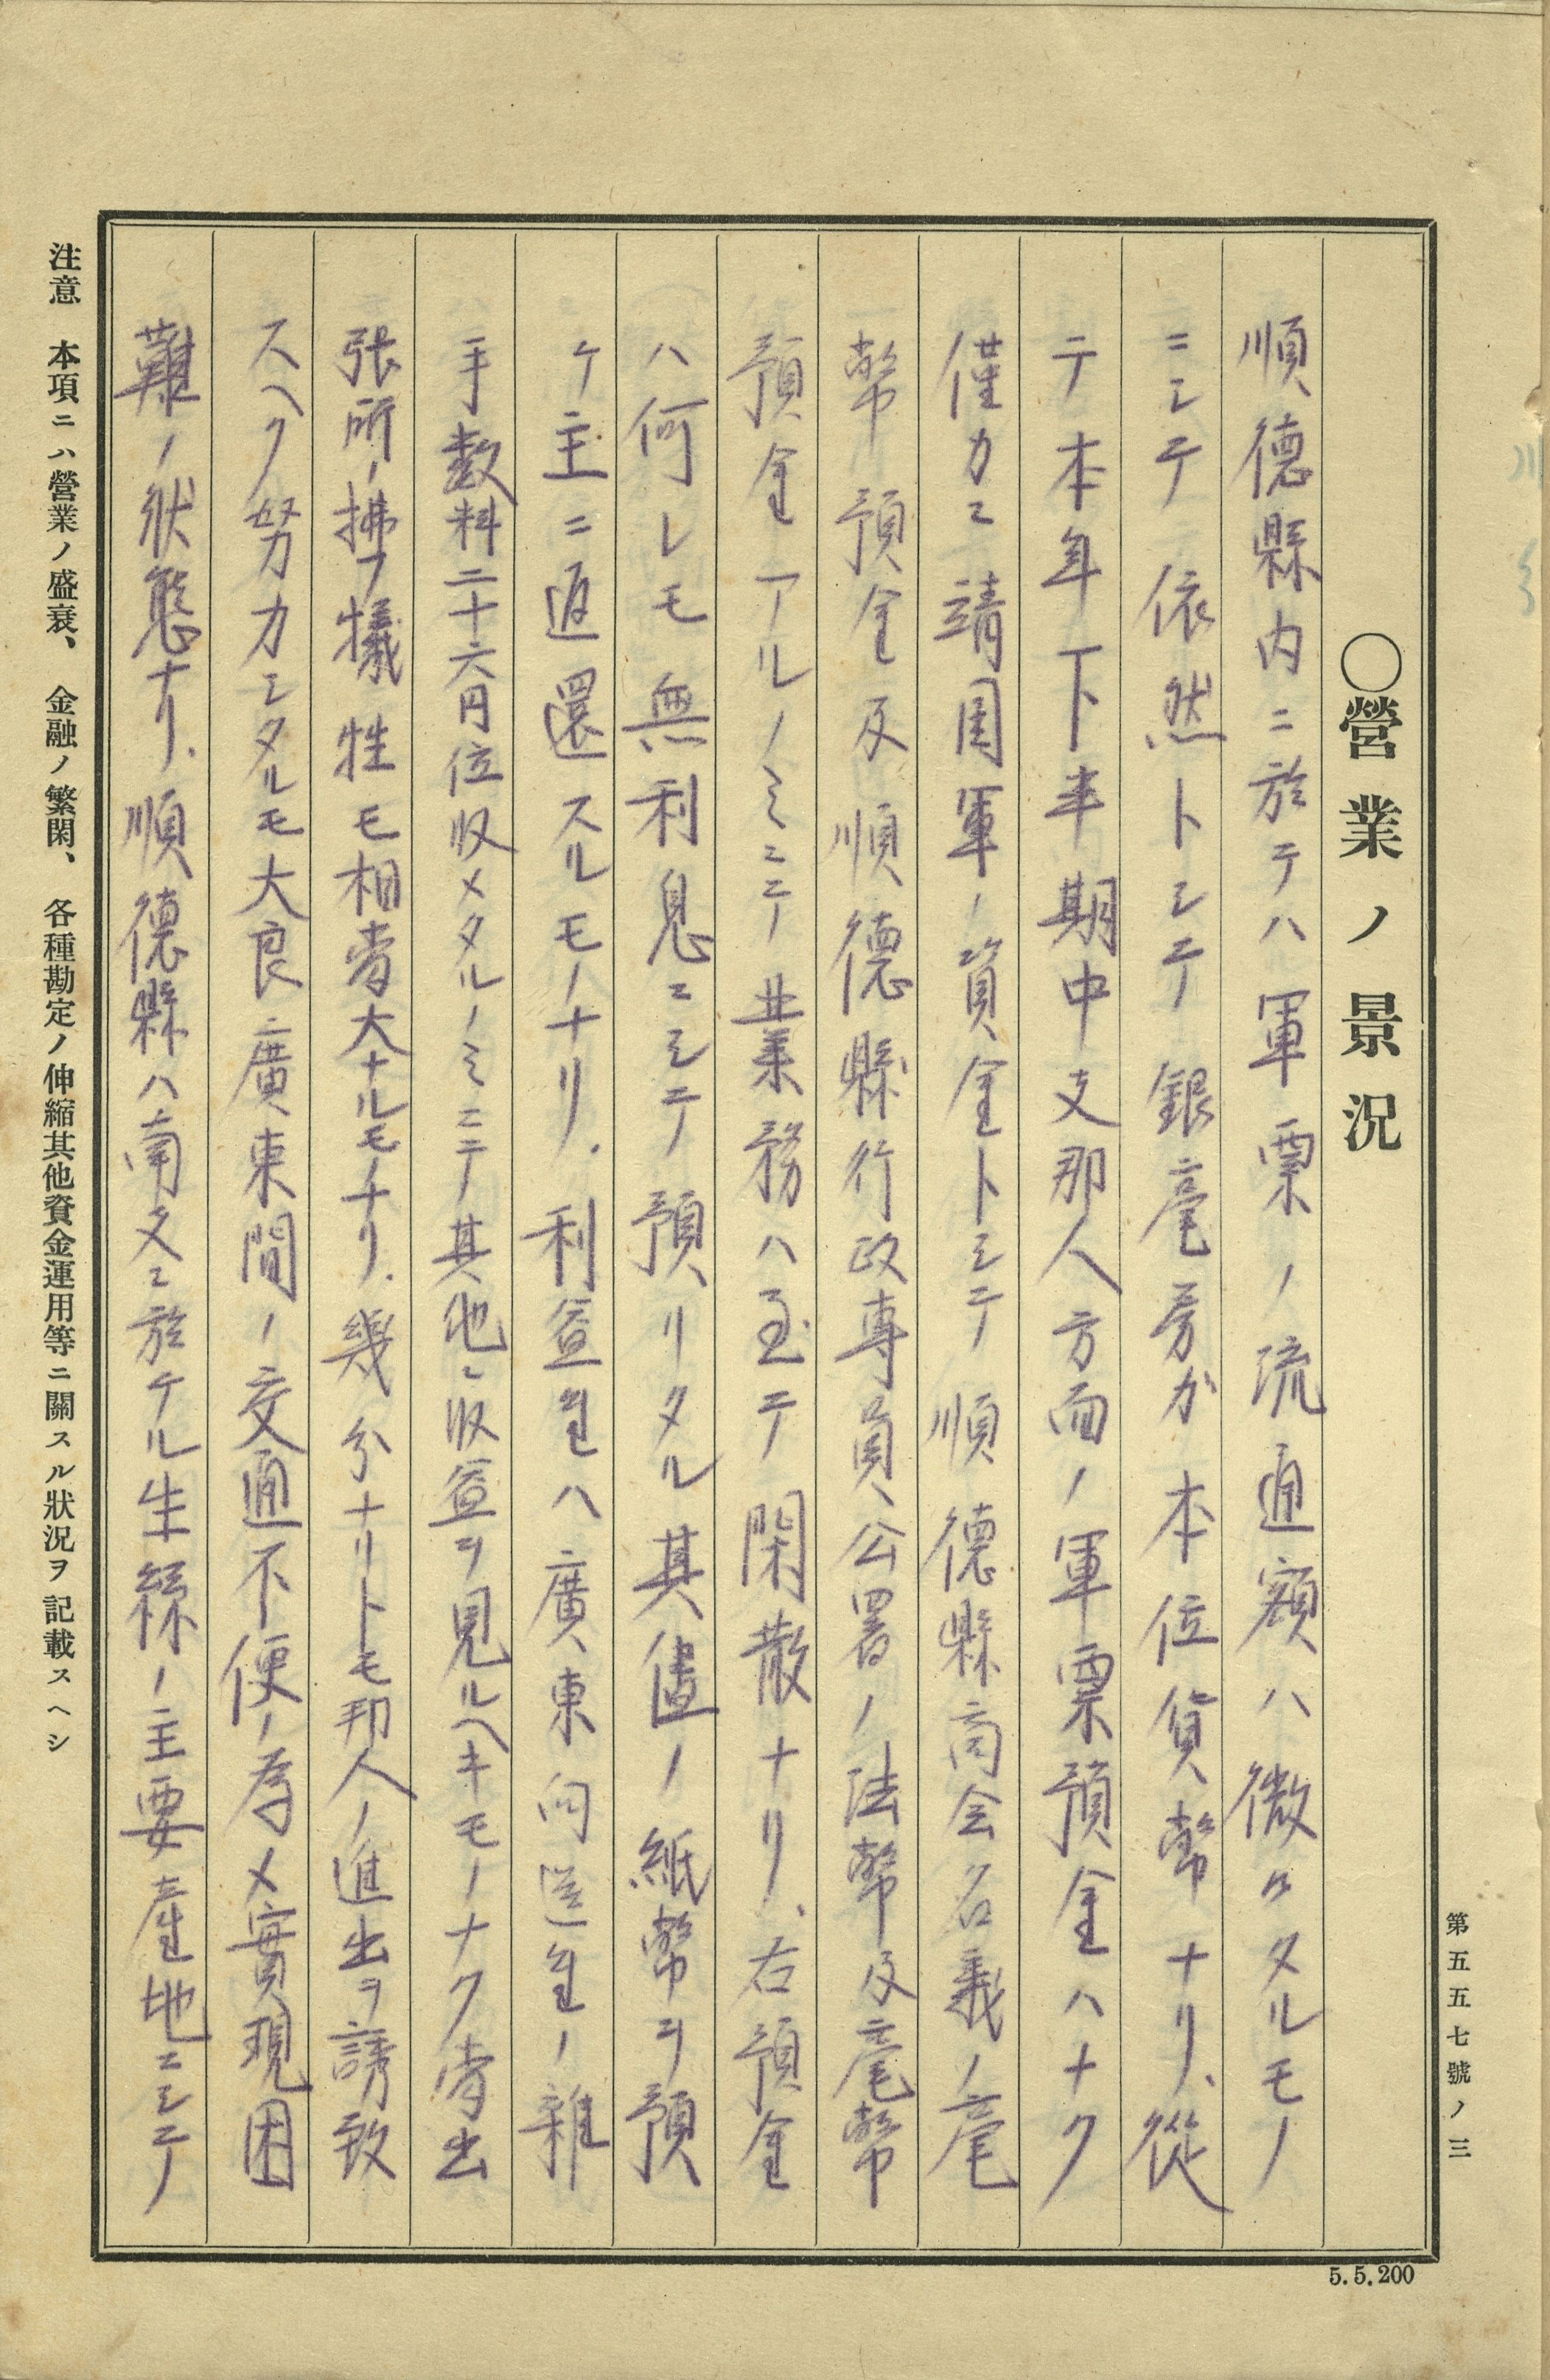 第五五七號ノ三
〇營業ノ景況
順德縣內ニ於テハ軍票ノ流通額ハ微々タルモノ
ニシテ依然トシテ銀毫券ガ本位貨幣ナリ、從
テ本年下半期中支那人方面ノ軍票預金ハナク
僅カニ靖国軍ノ資金トシテ順德縣商会名義ノ毫
幣預金及順德縣行政専員公署ノ法幣及毫幣
預金アルノミニテ業務ハ至テ閑散ナリ、右預金
ハ何レモ無利息ニシテ預リタル其儘ノ紙幣ヲ預
ケ主ニ返還スルモノナリ、利益金ハ廣東向送金ノ雜
手数料二十六円位収メタルノミニテ其他ニ収益ヲ見ルヘキモノナク当出
張所ノ拂フ犠牲モ相当大ナルモノナリ、幾分ナリトモ邦人ノ進出ヲ誘致
スヘク努力シタルモ大良廣東間ノ交通不便ノ為メ實現困
難ノ狀態ナリ、順德縣ハ南支ニ於ケル生絲ノ主要產地ニシテ
注意　本項ニハ營業ノ盛衰、金融ノ繁閑、各種勘定ノ伸縮其他資金運用等ニ關スル狀況ヲ記載スヘシ
5.5.200